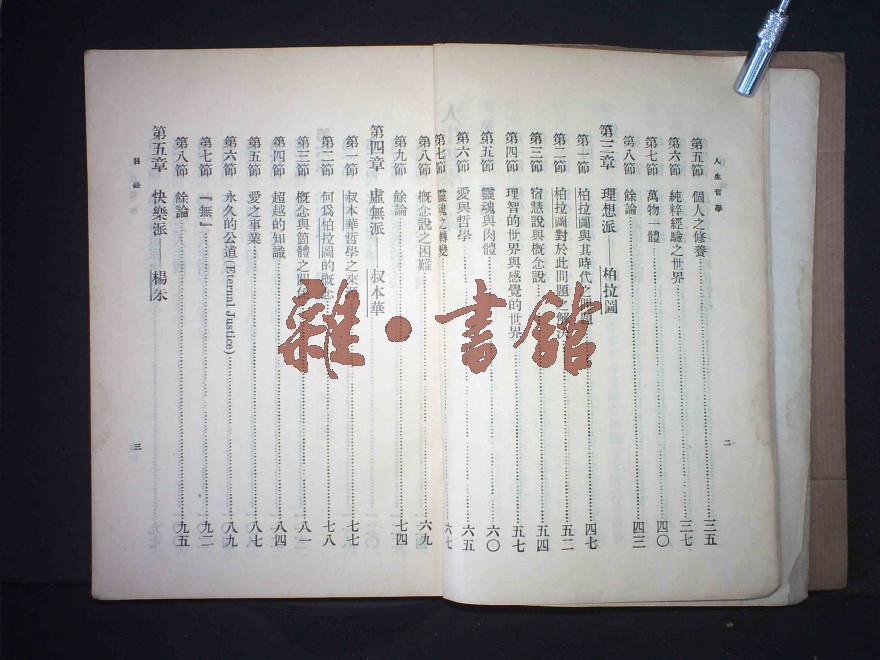 人生哲學
二
第五節 個人之修養 三五
第六節 純粹經驗之世界 三七
第七節 萬物一體 四〇
第八節 餘論 四三
第三章 理想派——柏拉圖
第一節 柏拉圖與其時代 問題 四七
第二節 柏拉圖對於此問題之解決 五二
第三節 宿慧說與概念說 五四
第四節 理智的世界與感覺的世界 五七
第五節 靈魂與肉體 六〇
第六節 愛與哲學 六五
第七節 靈魂之轉變 六七
第八節 概念說之困難 六九
第九節 餘論 七四
第四章 虛無派——叔本華
第一節 叔本華哲學之來 七七
第二節 何爲柏拉圖的概念 七八
第三節 概念與箇體之關係 八一
第四節 超越的知識 八四
第五節 愛之事業 八七
第六節 永久的公道(Eternal Justice) 八九
第七節 「無」 九二
第八節 餘論 九五
第五章 快樂派——楊朱
目錄
三
雜·書館